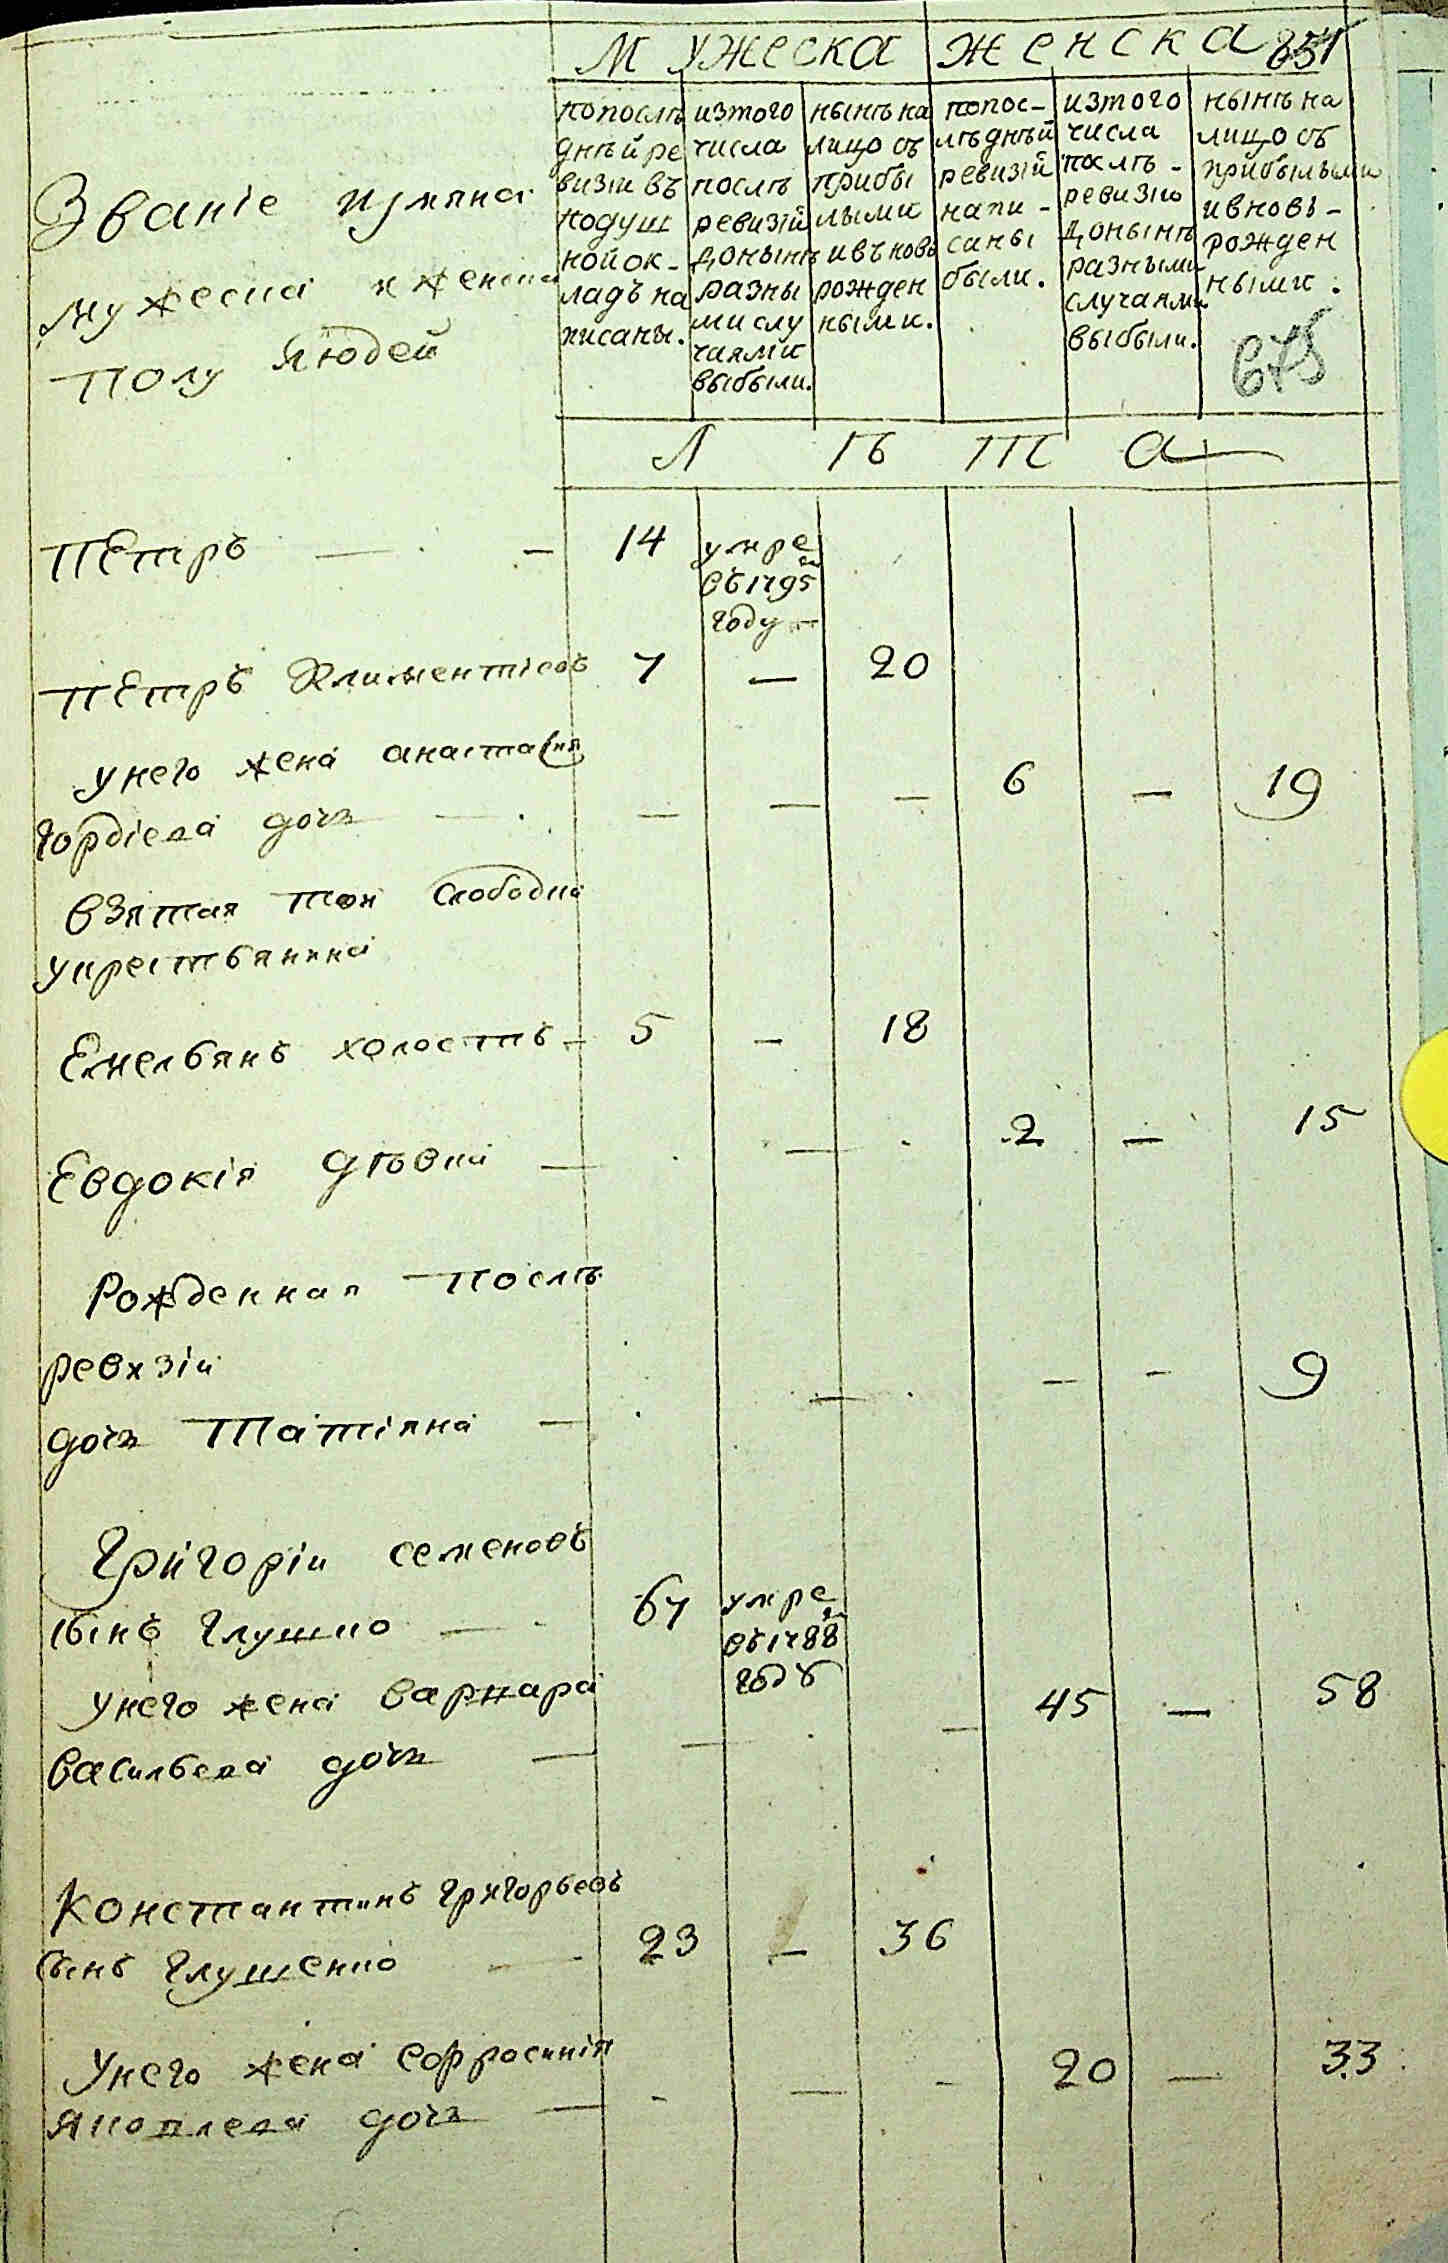 МУЖЕСКА ЖЕНСКА 651
Званіе имяна
мужеска и женска
полу людей
попослѣ
дней ре
визіи въ
подуш
ной ок-
ладъ на
писаны.
изтого
числа
послѣ
ревизіи
донынѣ
разны
ми слу
чаями
выбыли.
нынѣ на
лицо съ
прибы
лыми
ивъновь
рожден
ными.
попос-
лѣдней
ревизіи
напи-
саны
были.
изтого
числа
послѣ-
ревизіи
донынѣ
разными
случаями
выбыли.
нынѣ на
лицо съ
прибылыми
ивновь-
рожден
ными.
675
Л ѣ т а
Петръ — — 14 умре
въ 1795м
году —
Петръ Климентіевъ 7 — 20
унего жена анастасия 6 — 19
гордіева дочь — — — —
взятая тои слободки
укрестьянина
Емельянъ холостъ — 5 — 18
Евдокія дѣвка — — 2 — 15
Рожденная послѣ
ревизіи
дочь Татіяна — — — — 9
Григоріи семеновъ
сынъ глушко — 67 умре
въ 1788м
году
унего жена варвара 45 — 58
васильева дочь — — —
Константинъ григорьевъ
сынъ глушенко — 23 — 36
Унего жена ефросинія 20 — 33
яковлева дочь — - — -